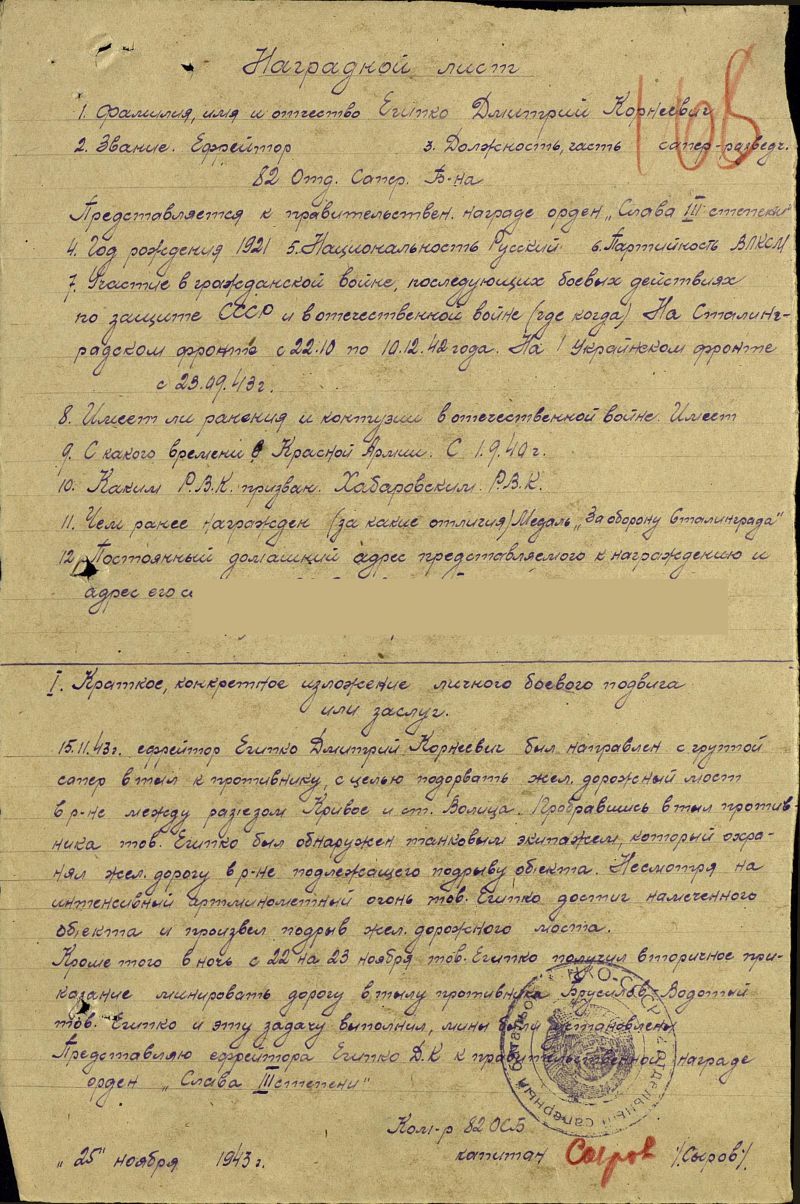 Наградной лист
168
1. Фамилия, имя и отчество Египко Дмитрий Корнеевич
2. Звание. Ефрейтор 3. Должность, часть сапер-разведч.
82 Отд. Сапер. Б-на
Представляется к правительствен. награде орден „Слава III степени"
4. Год рождения 1921 5. Национальность Русский 6. Партийность ВЛКСМ
7. Участие в гражданской войне, последующих боевых действиях
по защите СССР и в отечественной войне (где когда) На Сталинг-
радском фронте с 22.10 по 10.12.42 года. На 1 Украйнском фронте
с 23.09.43г.
8. Имеет ли ранения и контузии в отечественной войне. Имеет
9. С какого времени в Красной Армии. С 1.9.40г.
10. Каким Р.В.К. призван. Хабаровским. Р.В.К.
11. Чем ранее награжден (за какие отличия) Медаль „За оборону Сталинграда"
12. Постоянный домашний адрес представляемого к награждению и
адрес его
I. Краткое, конкретное изложение личного боевого подвига
или заслуг.
15.11.43г. ефрейтор Египко Дмитрий Корнеевич был направлен с группой
сапер в тыл к противнику, с целью подорвать жел. дорожный мост
в р-не между разъезом Кривое и ст. Волица. Пробравшись в тыл против-
ника тов. Египко был обнаружен танковым экипажем, который охра-
нял жел. дорогу в р-не подлежащего подрыву объекта. Несмотря на
интенсивный артминометный огонь тов. Египко достиг намеченного
объекта и произвел подрыв жел. дорожного моста.
Кроме того в ночь с 22 на 23 ноября тов. Египко получил вторичное при-
казание минировать дорогу в тылу противника Брусилов-Водотый
тов. Египко и эту задачу выполнил, мины были установлены
Представляю ефрейтора Египко Д.К к правительственной награде
орден „Слава III степени"
НКО-СССР отдельный саперный батальон
Ком-р 82 ОСБ
„25" ноября 1943г. капитан Сыров /Сыров/.